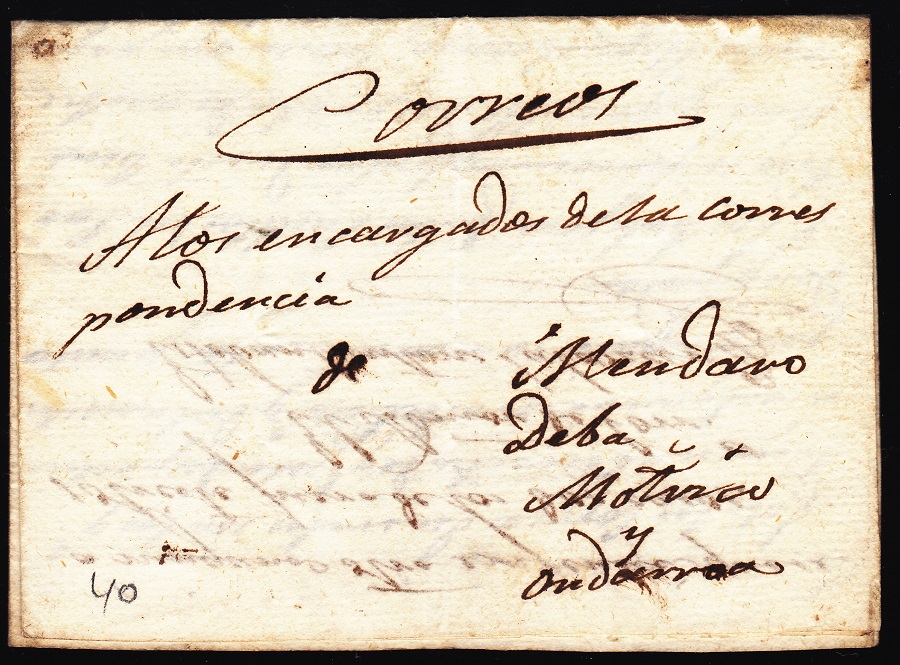 Correos
A los encargados dela corres
pondencia
de Mendaro
Deba
Motrico
y
ondarroa
40